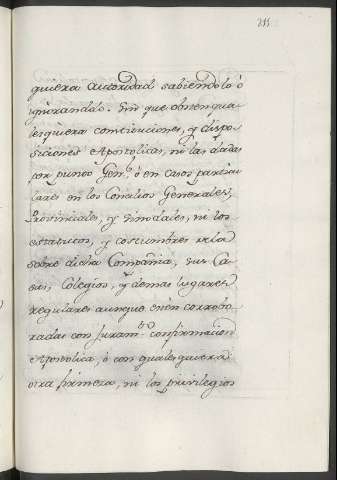 211
quiera autoridad sabiendolo ò
ignorandolo. Sin que obsten qua
lesquiera constituciones, y dispo
siciones Apostolicas, ni las dadas
por punto Gen.l ó en casos particu
lares en los Concilios Generales,
Provinciales, y Sinodales, ni los
estatutos, y costumbres de la
sobre dicha Compañia, sus Ca
sas, Colegios, y demas lugares
regulares aunque estén corrobo
radas con Juram.to confirmacion
Apostolica, ó con qualesquiera
otra firmeza, ni los privilegios